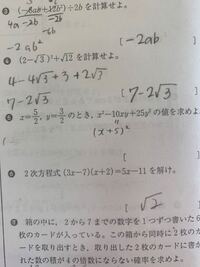 ③ (-8ab+12b²)÷2b を計算せよ。
4a -2b
-2ab²
[ -2ab
④ (2-√3)²+√12 を計算せよ。
4-4√3+3+2√3
7-2√3
[ 7-2√3
⑤ x=5/2, y=3/2 のとき, x²-10xy+25y² の値を求め
(x+5)²
[
⑥ 2次方程式 (3x-7)(x+2)=5x-11 を解け。
[ √2
⑦ 箱の中に, 2から7までの数字を1つずつ書いた6
枚のカードが入っている。この箱から同時に2枚のカ
ードを取り出すとき, 取り出した2枚のカードに書か
れた数の積が4の倍数にならない確率を求めよ。